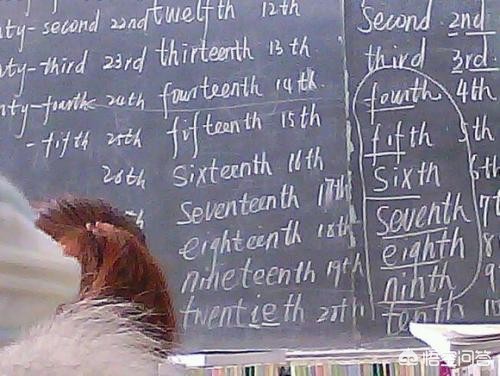 ty-second 22nd twelfth 12th
ty-third 23rd thirteenth 13th
ty-fourth 24th fourteenth 14th
-fifth 25th fifteenth 15th
26th sixteenth 16th
th seventeenth 17th
eighteenth 18th
nineteenth 19th
twentieth 20th
second 2nd
third 3rd
fourth 4th
fifth 5th
sixth 6th
seventh 7t
eighth 8
ninth 9
tenth 10
悟空问答